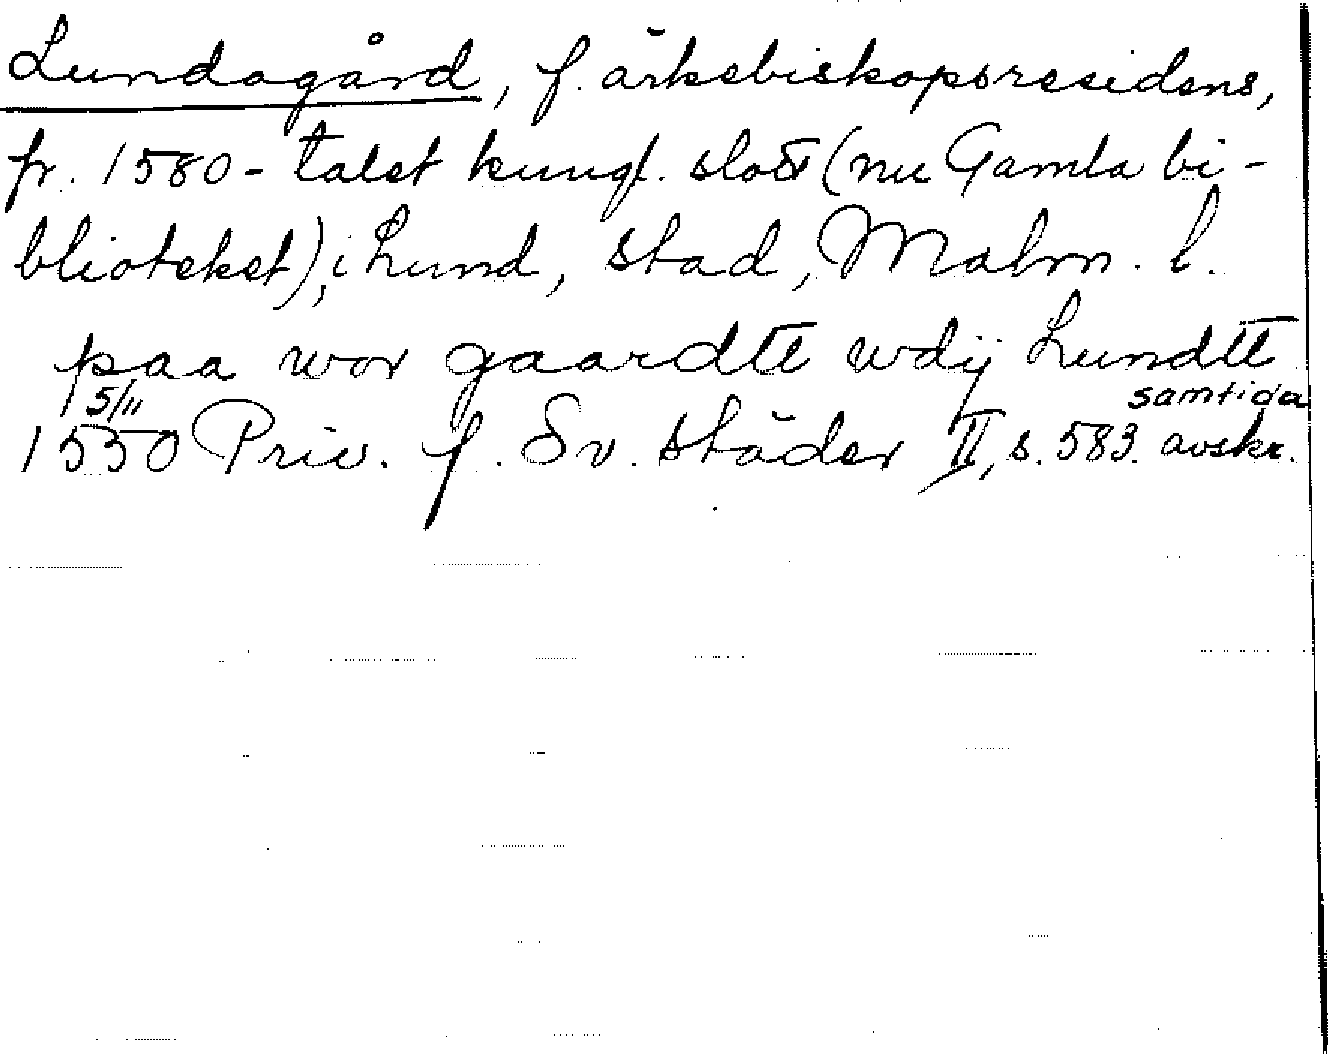 Lundagård, f. ärkebiskopsresidens,
fr. 1580-talet kungl. slott (nu Gamla bi-
blioteket), i Lund, stad, Malm. l.
paa wor gaardtt wdij Lundtt
5/11 samtida
1550 Priv. f. Sv. städer II, s. 583. avskr.